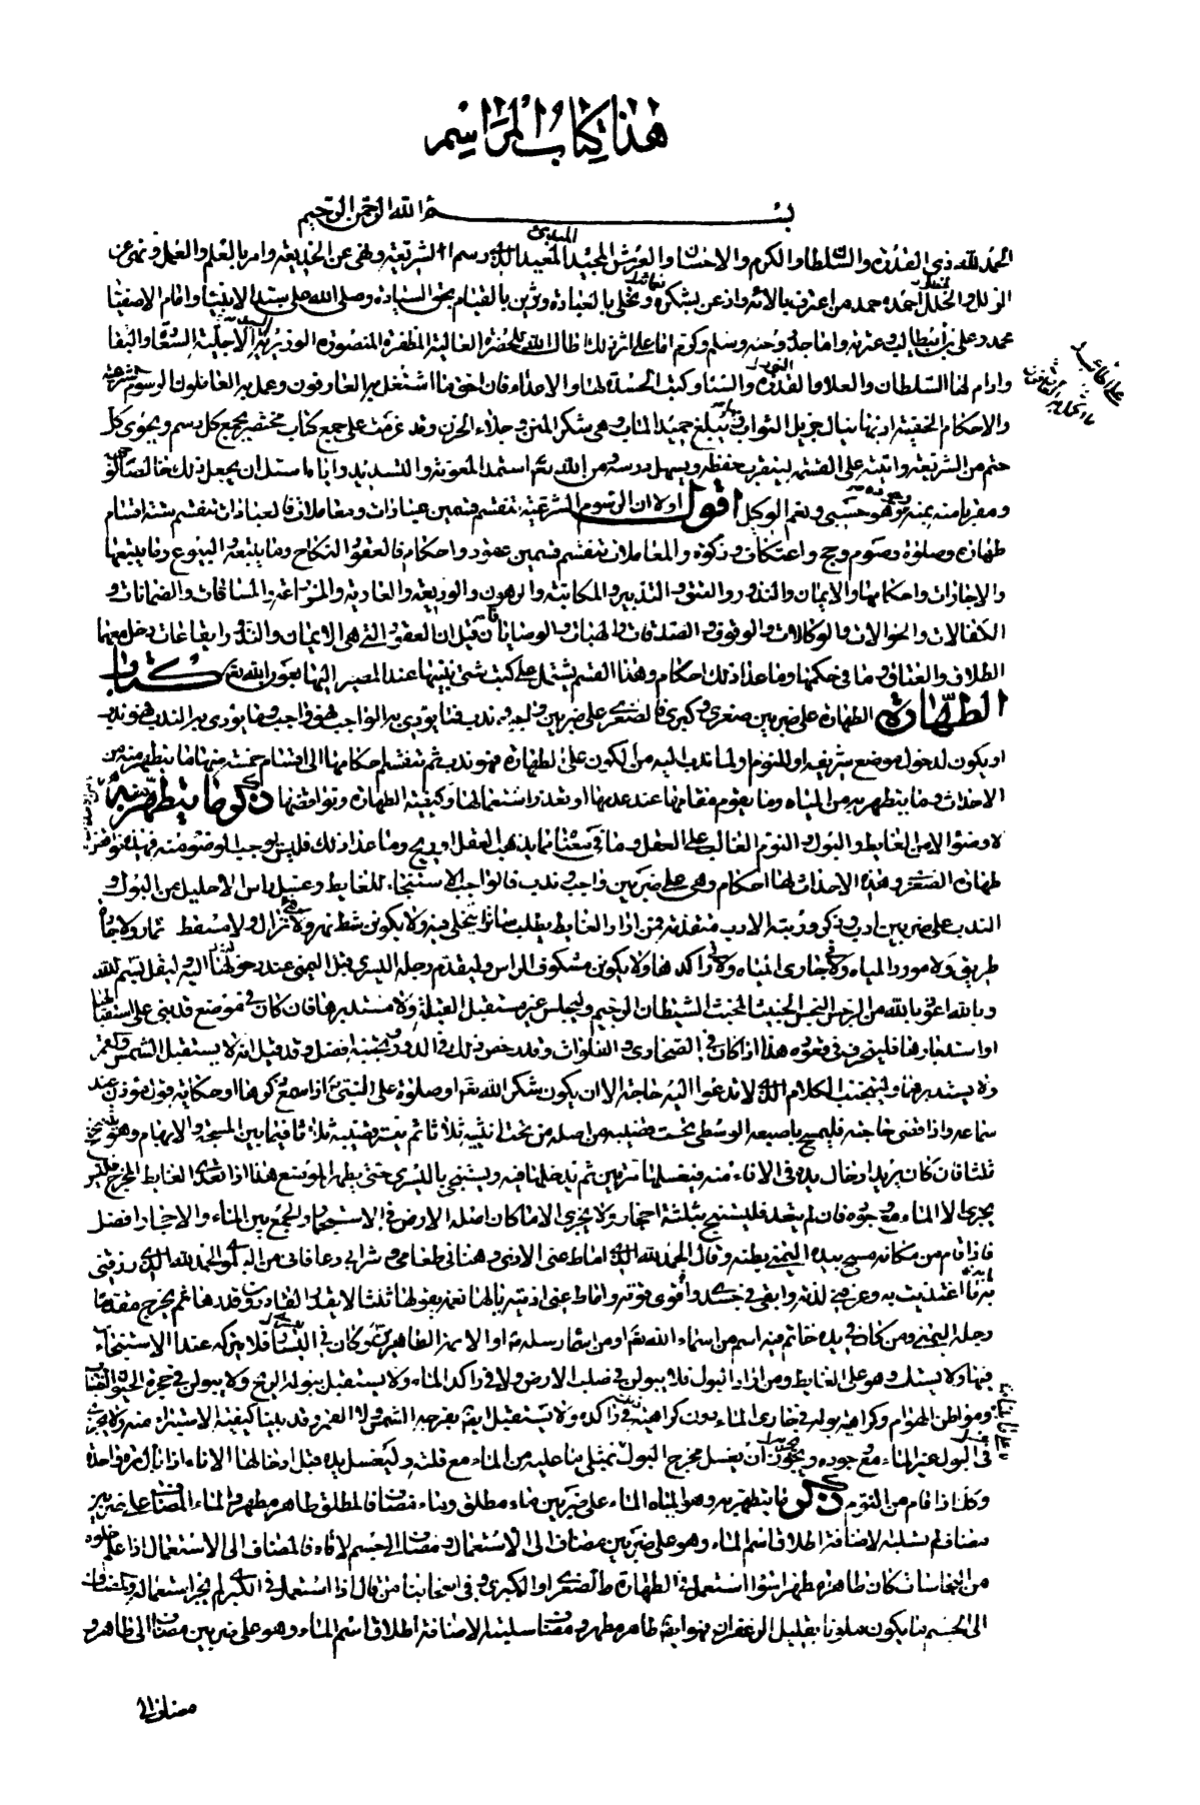 هذا كتاب المراسم
بسم الله الرحمن الرحيم
الحمد لله ذي القدرة والسلطان والكرم والاحسان والعرش المجيد المبدئ المعيد الذي رسم الشريعة ونهى عن الخديعة وامر بالعلم والعمل ونهى عن
الزلل والخلل احمده حمد من اعترف بالائه واذعن بشكر نعمائه وتحلى بالعبادة وتزين بالقيام بحق السيادة وصلى الله على سيد الانبياء وامام الاصفياء
محمد وعلى بن ابيطالب وعترته واماجد وسلم وكرم اما على اثر ذلك اطال الله للحضرة العالية المظفرة المنصورة الوزيرية الاجلية السعادة والبقاء
وادام لها السلطان والعلا والقدرة والسنا وكبت الحسدة لها والاعداء فان احق ما اشتغل به العارفون وعمل به العاملون الرسوم الشرعية
والاحكام الحنيفية اذ بها ينال جزيل الثواب ويبلغ حميد المآب وهي شكر المنن وجلاء الحزن وقد عزمت على جمع كتاب مختصر يجمع كل رسم ويحوى كل
حتم من الشريعة وابنيه على القسمة ليقرب حفظه ويسهل درسه ومن الله تعالى استمد المعونة والتسديد واياه اسئل ان يجعل ذلك خالصا له
ومقربا منه بمنه وجوده وهو حسبي ونعم الوكيل اقول اولا ان الرسوم الشرعية تنقسم قسمين عبادات ومعاملات فالعبادات تنقسم ستة اقسام
طهارة وصلوة وصوم وحج واعتكاف وزكوة والمعاملات تنقسم قسمين عقود واحكام فالعقود النكاح وما يتبعه والبيوع وما يتبعها
والاجارات واحكامها والايمان والنذور والعتق والتدبير والمكاتبة والرهون والوديعة والعارية والمزارعة والمساقات والضمانات و
الكفالات والحوالات والوكالات والوقوف والصدقات والهبات والوصايا فان قيل ان العقود التي هي الايمان والنذور ايقاعات دخل معها
الطلاق والعتاق وما في حكمها وما عدا ذلك احكام وهذا القسم يشتمل على كتب شتى نبينها عند المصير اليها بعون الله تعالى كتاب
الطهارة الطهارة على ضربين صغرى وكبرى فالصغرى على ضربين واجبة وندب فما يؤدى به الواجب فهو واجب وما يؤدى به الندب فهو ندب
او يكون لدخول موضع شريف او للنوم ولما ندب اليه من الكون على الطهارة فهو ندب ثم تنقسم احكامها الى اقسام خمسة منها ما يتطهر منه من
الاحداث وما يتطهر به من المياه وما يقوم مقامها عند عدمها او تعذر استعمالها وكيفية الطهارة ونواقضها ذكر ما يتطهر منه
لا وضوء الا من الغايط والبول والنوم الغالب على العقل وما في معناه مما يذهب العقل او ريح وما عدا ذلك فليس يوجب الوضوء منه فهذه نواقض
طهارة الصغرى وهذه الاحداث لها احكام وهي على ضربين واجب وندب فالواجب الاستنجاء للغايط وغسل راس الاحليل من البول و
الندب على ضربين ادب وذكر ورتبة الادب متقدمة فمن اراد الغايط يطلب ساترا يتخلى فيه ولا يكون شط نهر ولا فئ نزال ولا مسقط ثمار ولا جادة
طريق ولا مورد المياه ولا في جارى المياه ولا في راكدها ولا يكون مكشوف الراس وليقدم رجله اليسرى قبل اليمنى عند دخوله اليه وليقل بسم الله
وبالله اعوذ بالله من الرجس النجس الخبيث المخبث الشيطان الرجيم وليجلس غير مستقبل القبلة ولا مستدبرها فان كان في موضع قد بنى على استقبالها
او استدبارها فلينحرف في قعوده هذا اذا كان في الصحارى والفلوات وقد رخص ذلك في الدور وتجنبه افضل وقد قيل انه لا يستقبل الشمس والقمر
ولا يستدبرهما وليتجنب الكلام الذي لا تدعو اليه حاجة الا ان يكون شكر الله تعالى او صلوة على النبي اذا سمع ذكره او حكاية قول مؤذن عند
سماعه واذا قضى حاجته فليمسح باصبعه الوسطى تحت قضيبه من اصله من تحت انثييه ثلاثا ثم ينتر قضيبه ثلاثا فيما بين المسبحة والابهام وهو يتنحنح
ثلثا فان كان يريد ادخال يده في الاناء منه فيغسلها مرتين ثم يدخلها فيه ويستنجى باليسرى حتى يطهر الموضع هذا اذا تعدى الغايط المخرج فليس
يجزى الا الماء مع وجوده فان لم يتعد فليستنج بثلثة احجار ولا يجزى الا ما كان اصله الارض في الاستجمار والجمع بين الماء والاحجار افضل
فاذا قام من مكانه مسح بيده اليمنى بطنه وقال الحمد لله الذي اماط عنى الاذى وهنانى طعامى وشرابى وعافانى من البلوى الحمد لله الذي رزقنى
ما اغتذيت به وعرفنى لذته وابقى في جسدى قوته واماط عنى اذيته يا لها نعمة يقولها ثلثا لا يقدر القادرون قدرها ثم يخرج مقدما
رجله اليمنى ومن كان في يده خاتم فيه اسم من اسماء الله تعالى او من اسماء رسله او الائمة الطاهرين وكان في اليسار فلا يتركه عند الاستنجاء
فيها ولا يستك وهو على الغايط ومن اراد البول فلا يبولن في صلب الارض ولا في راكد الماء ولا يستقبل ببوله الريح ولا يبولن في جحرة الحيوان
ومواطن الهوام وكراهية بوله في جارى الماء دون كراهيته في راكده ولا يستقبل ايضا بفرجه الشمس ولا القمر وقد بينا كيفية الاستبراء منه ولا يجزى
في البول غير الماء مع وجوده ويجوز ان يغسل مخرج البول بمثلى ما عليه من الماء مع قلته وليغسل يده قبل ادخالها الاناء اذا بال مرة واحدة
وكذا اذا قام من النوم ذكر ما يتطهر به وهو المياه الماء على ضربين ماء مطلق وماء مضاف فالمطلق طاهر مطهر والماء المضاف على ضربين
مضاف لم تسلبه الاضافة اطلاق اسم الماء وهو على ضربين مضاف الى الاستعمال ومضاف الى جسم لاقاه فالمضاف الى الاستعمال اذا علم خلوه
من النجاسات كان طاهرا مطهرا سواء استعمل في الطهارة الصغرى او الكبرى وفي اصحابنا من قال اذا استعمل في الكبرى لم يجز استعماله والمضاف
الى الجسم ما يكون ملونا بقليل الزعفران فهو ايضا طاهر مطهر ومضاف سلبته الاضافة اطلاق اسم الماء وهو على ضربين مضاف الى طاهر و
مضاف الى